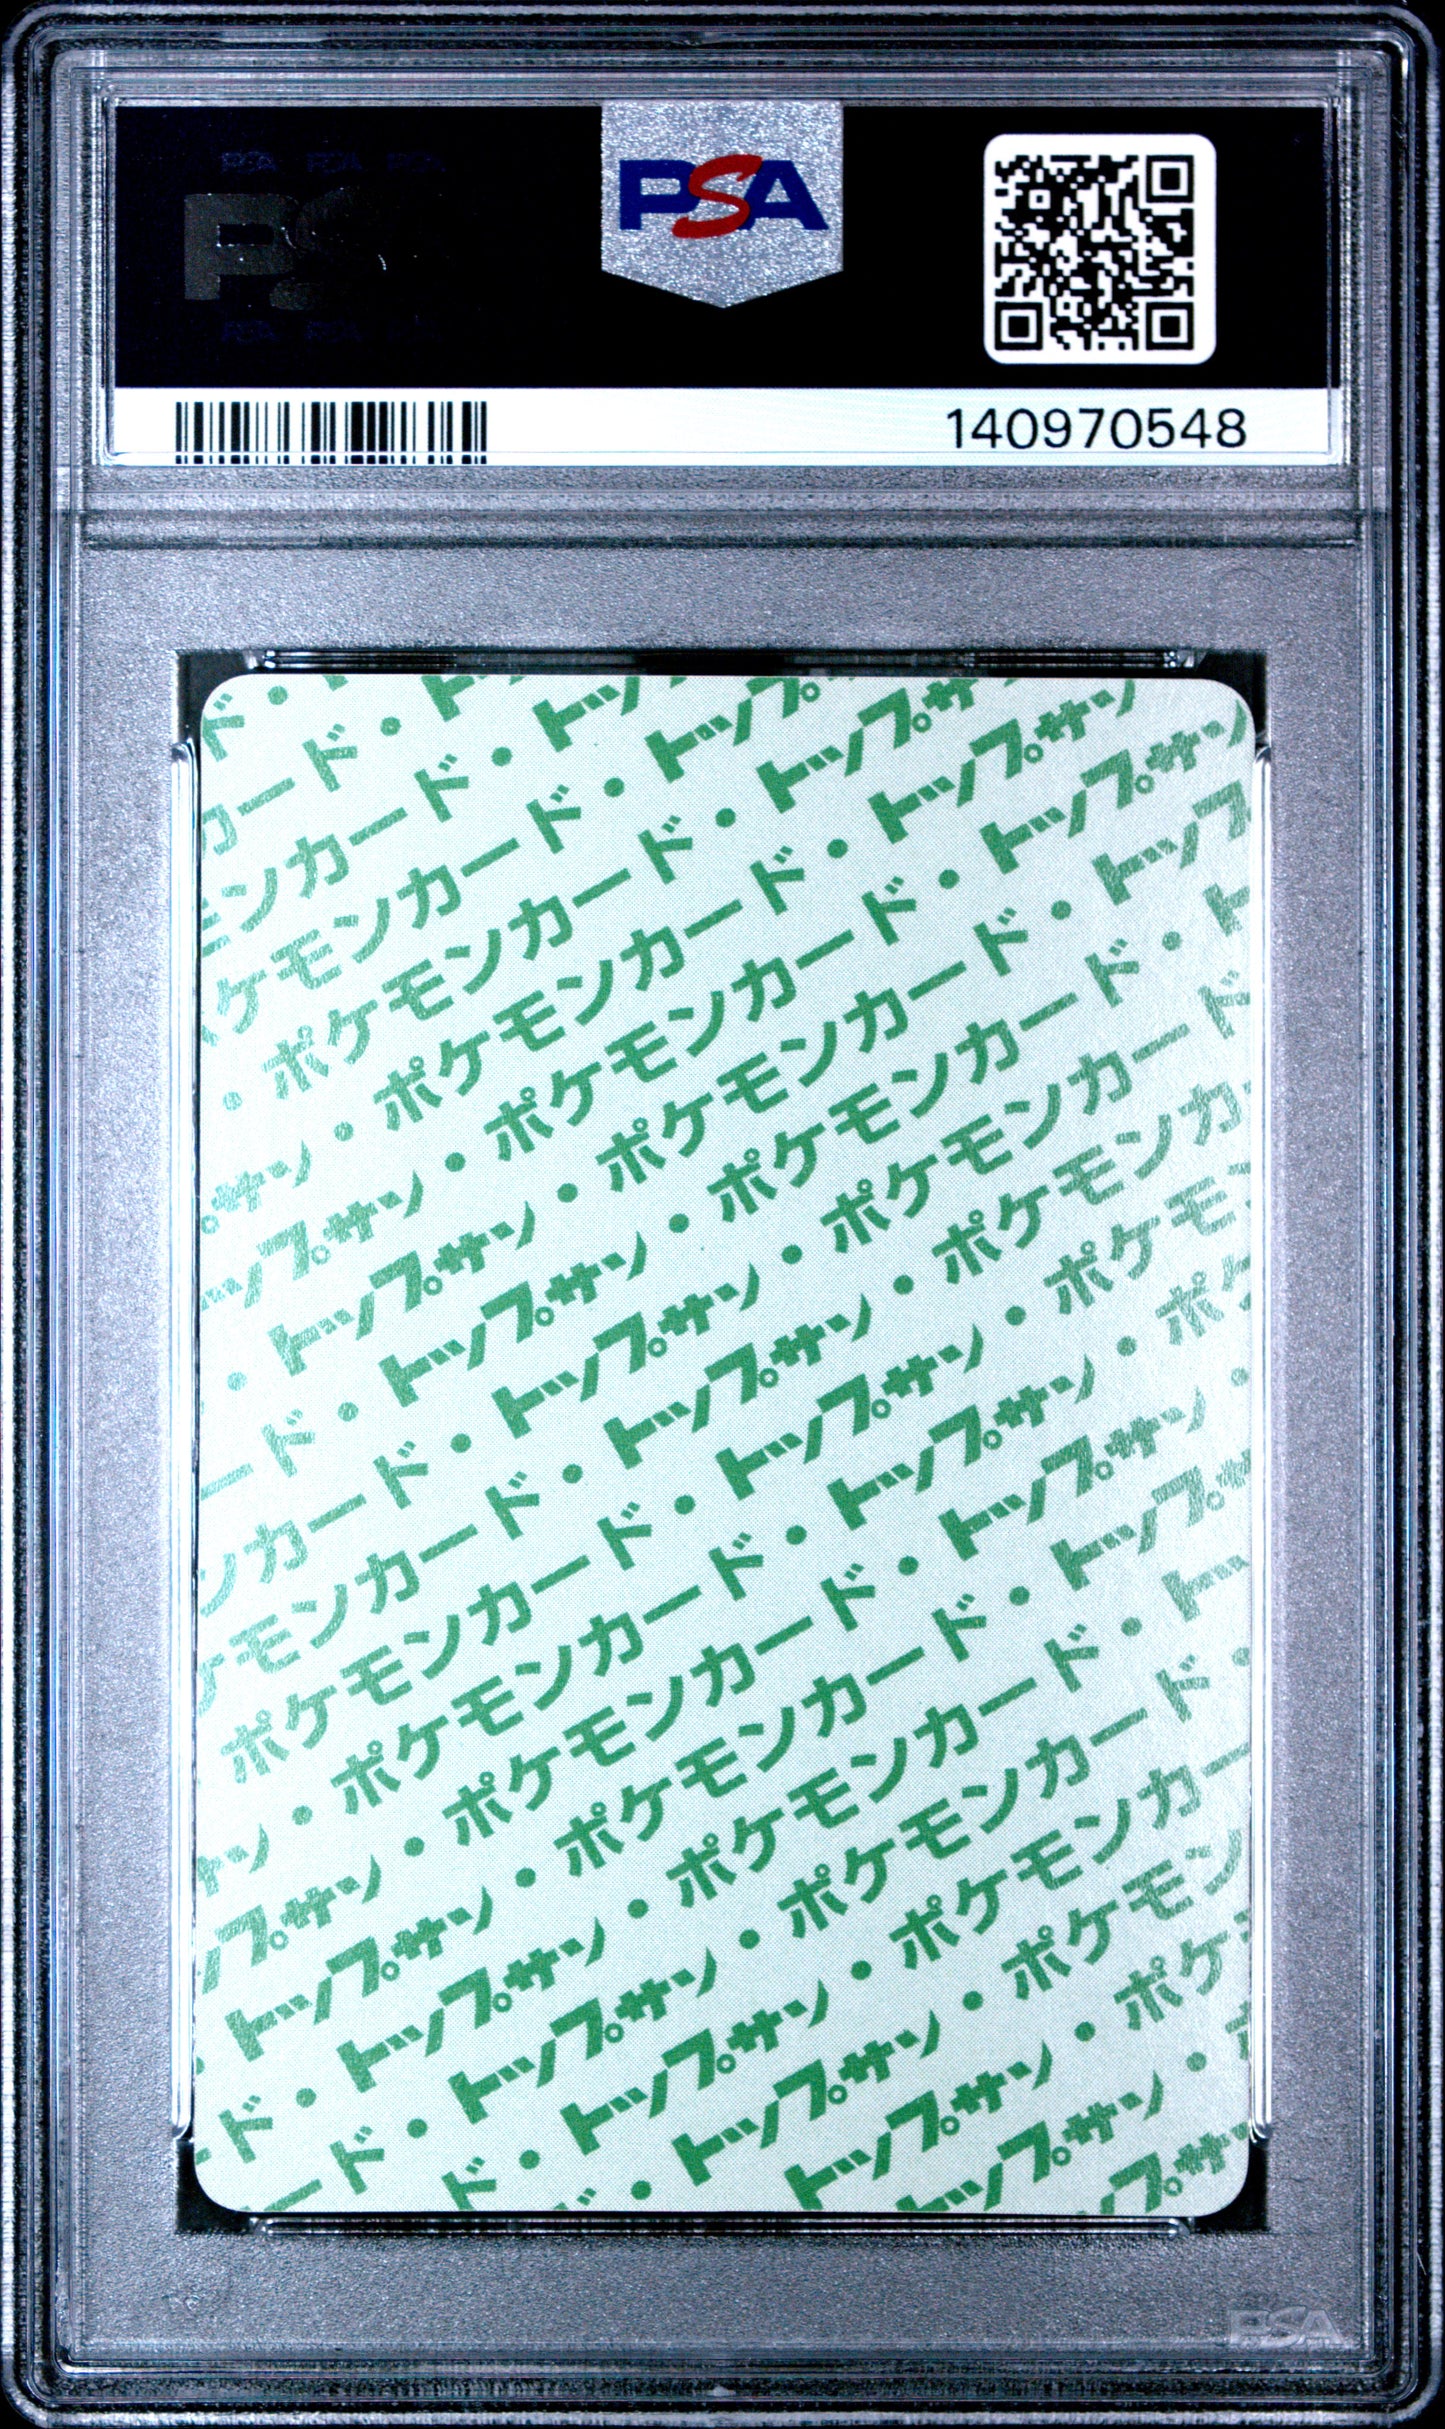 PSA
140970548
ド・
カード・ト
ンカード・トッ
ケモンカード・トップ
・ポケモンカード・トップサ
サン・ポケモンカード・トップサン
ップサン・ポケモンカード・トップサン
・トップサン・ポケモンカード・トップ
ード・トップサン・ポケモンカード・ト
ンカード・トップサン・ポケモンカード
ケモンカード・トップサン・ポケモンカ
ポケモンカード・トップサン・ポケモ
サン・ポケモンカード・トップサン・ポケ
ップサン・ポケモンカード・トップサン・
トップサン・ポケモンカード・トップサ
ド・トップサン・ポケモンカード・トッ
ード・トップサン・ポケモンカード・
ド・トップサン・ポケモンカー
・トップサン・ポケモン
トップサン・ポケ
トップサン・
プサ
PSA